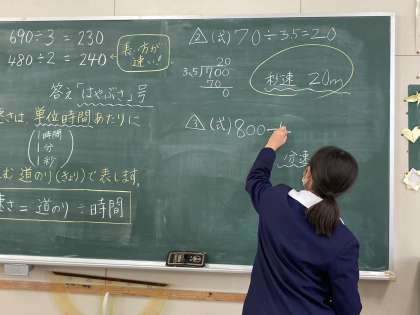 690÷3＝230
480÷2＝240
長い方が
速い!
答え「はやぶさ」号
さは 単位時間あたりに
1時間
1分
1秒
む 道のり(きょり)で表します。
速さ＝道のり÷時間
② (式) 70÷3.5＝20
20
3.5)700
70
0
秒速 20m
③ (式) 800
分速